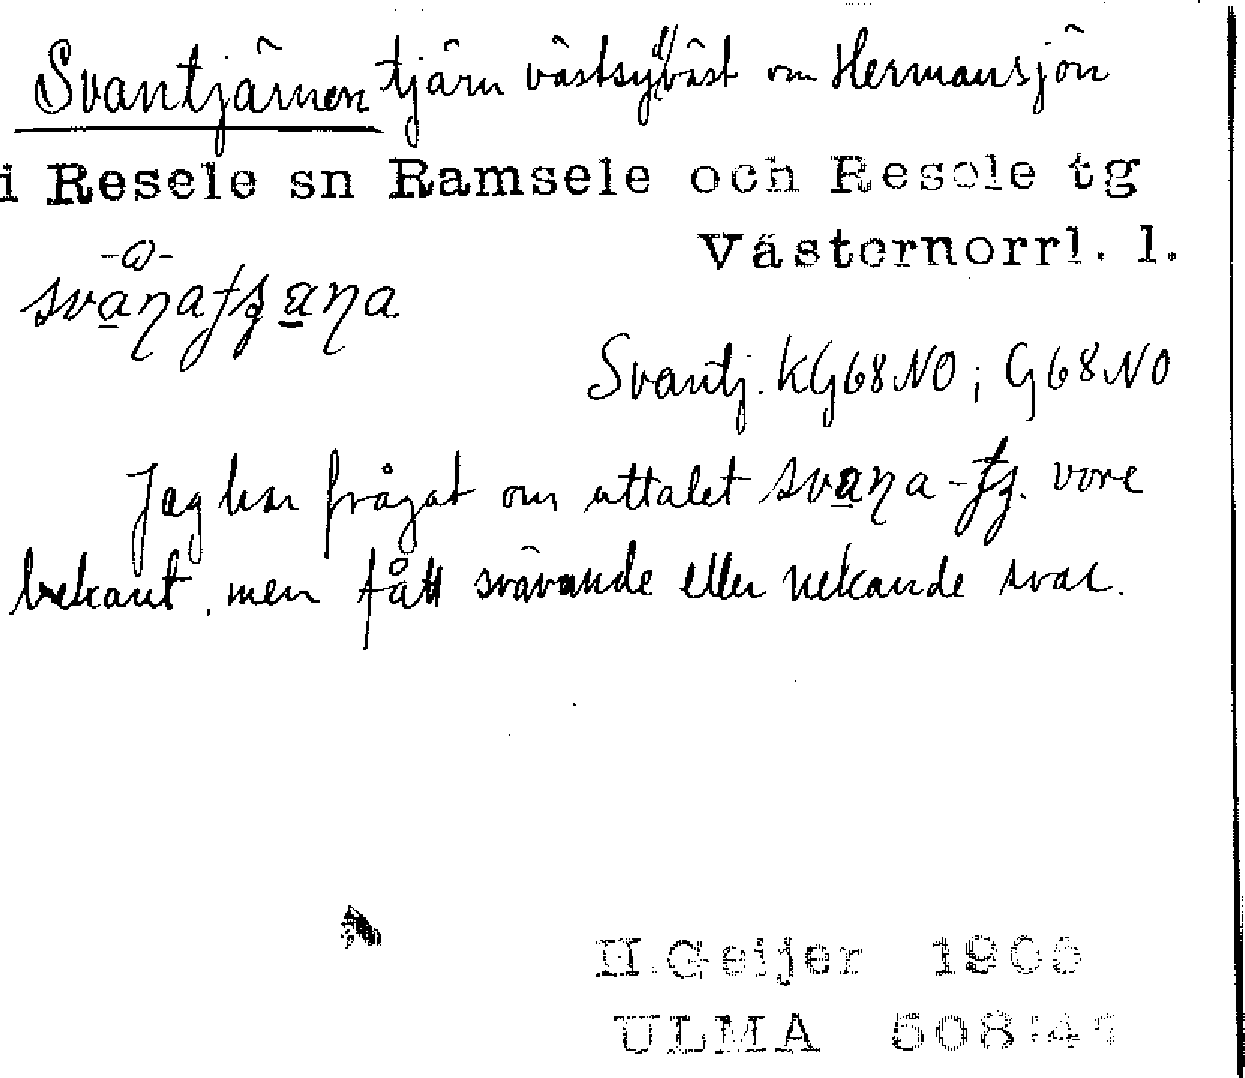 Svantjärnen tjärn västsydväst om Hermansjön
i Resele sn Ramsele och Resele tg
Västernorrl. l.
Svantj. KG68NO; G68NO
Jag har frågat om uttalet vore
bekant, men fått svävande eller nekande svar.
H.Geijer
ULMA